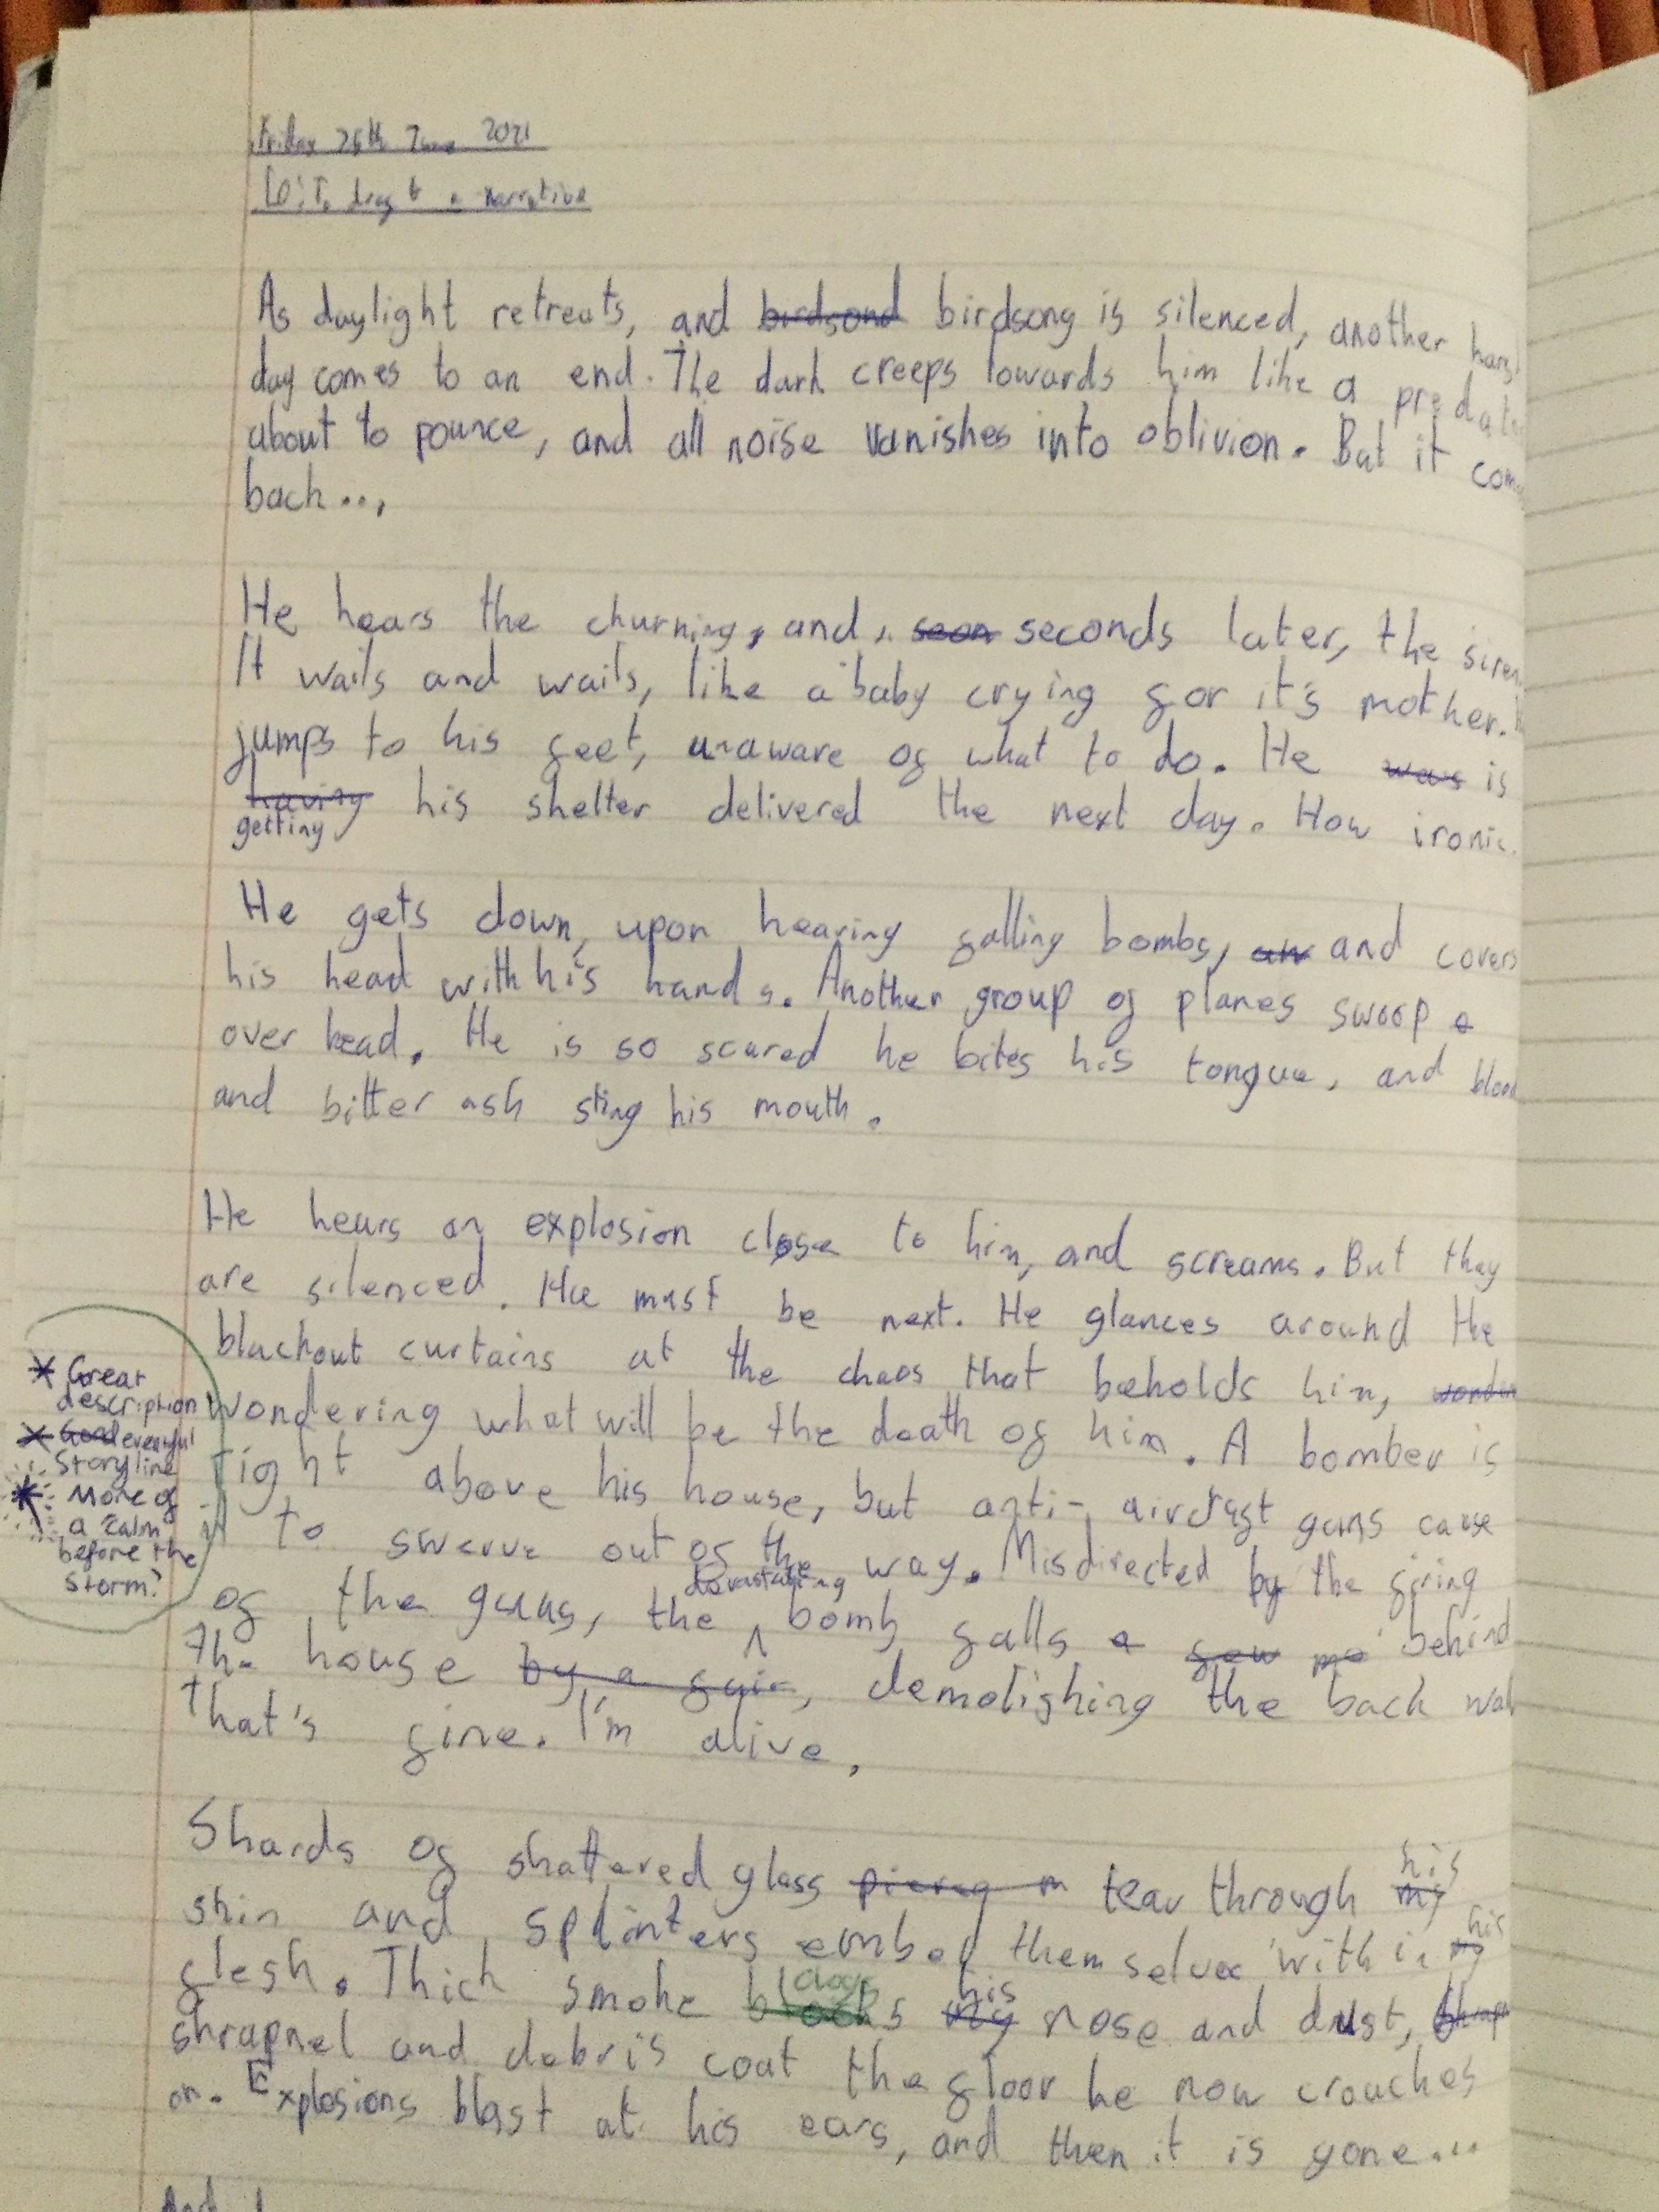 Friday 25th June 2021
LO: To draft a narrative
As daylight retreats, and birdsond birdsong is silenced, another
day comes to an end. The dark creeps towards him like a
about to pounce, and all noise vanishes into oblivion. But it
back...
He hears the churning, and, soon seconds later, the
It wails and wails, like a baby crying for it's mother.
jumps to his feet, unaware of what to do. He was is
having getting his shelter delivered the next day. How ironic.
He gets down, upon hearing falling bombs, an and covers
his head with his hands. Another group of planes swoop a
over head. He is so scared he bites his tongue, and blood
and bitter ash sting his mouth.
He hears an explosion close to him, and screams. But they
are silenced. He must be next. He glances around the
blackout curtains at the chaos that beholds him,
wondering what will be the death of him. A bomber is
right above his house, but anti-aircraft guns cause
it to swerve out of the way. Misdirected by the firing
of the guns, the devastating bomb falls a few me behind
the house by a , demolishing the back
that's fine. I'm alive.
Shards of shattered glass tear through my his
skin and splinters embed themselves within my his
flesh. Thick smoke blocks clogs my his nose and dust,
shrapnel and debris coat the floor he now crouches
on. Explosions blast at his ears, and then it is gone...
Great
description
Good eventful
storyline
More of
a calm
before the
storm?